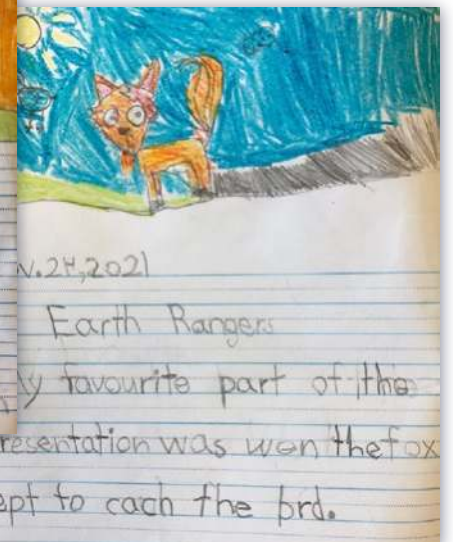 v.24,2021
Earth Rangers
y favourite part of the
resentation was wen the fox
ept to cach the brd.